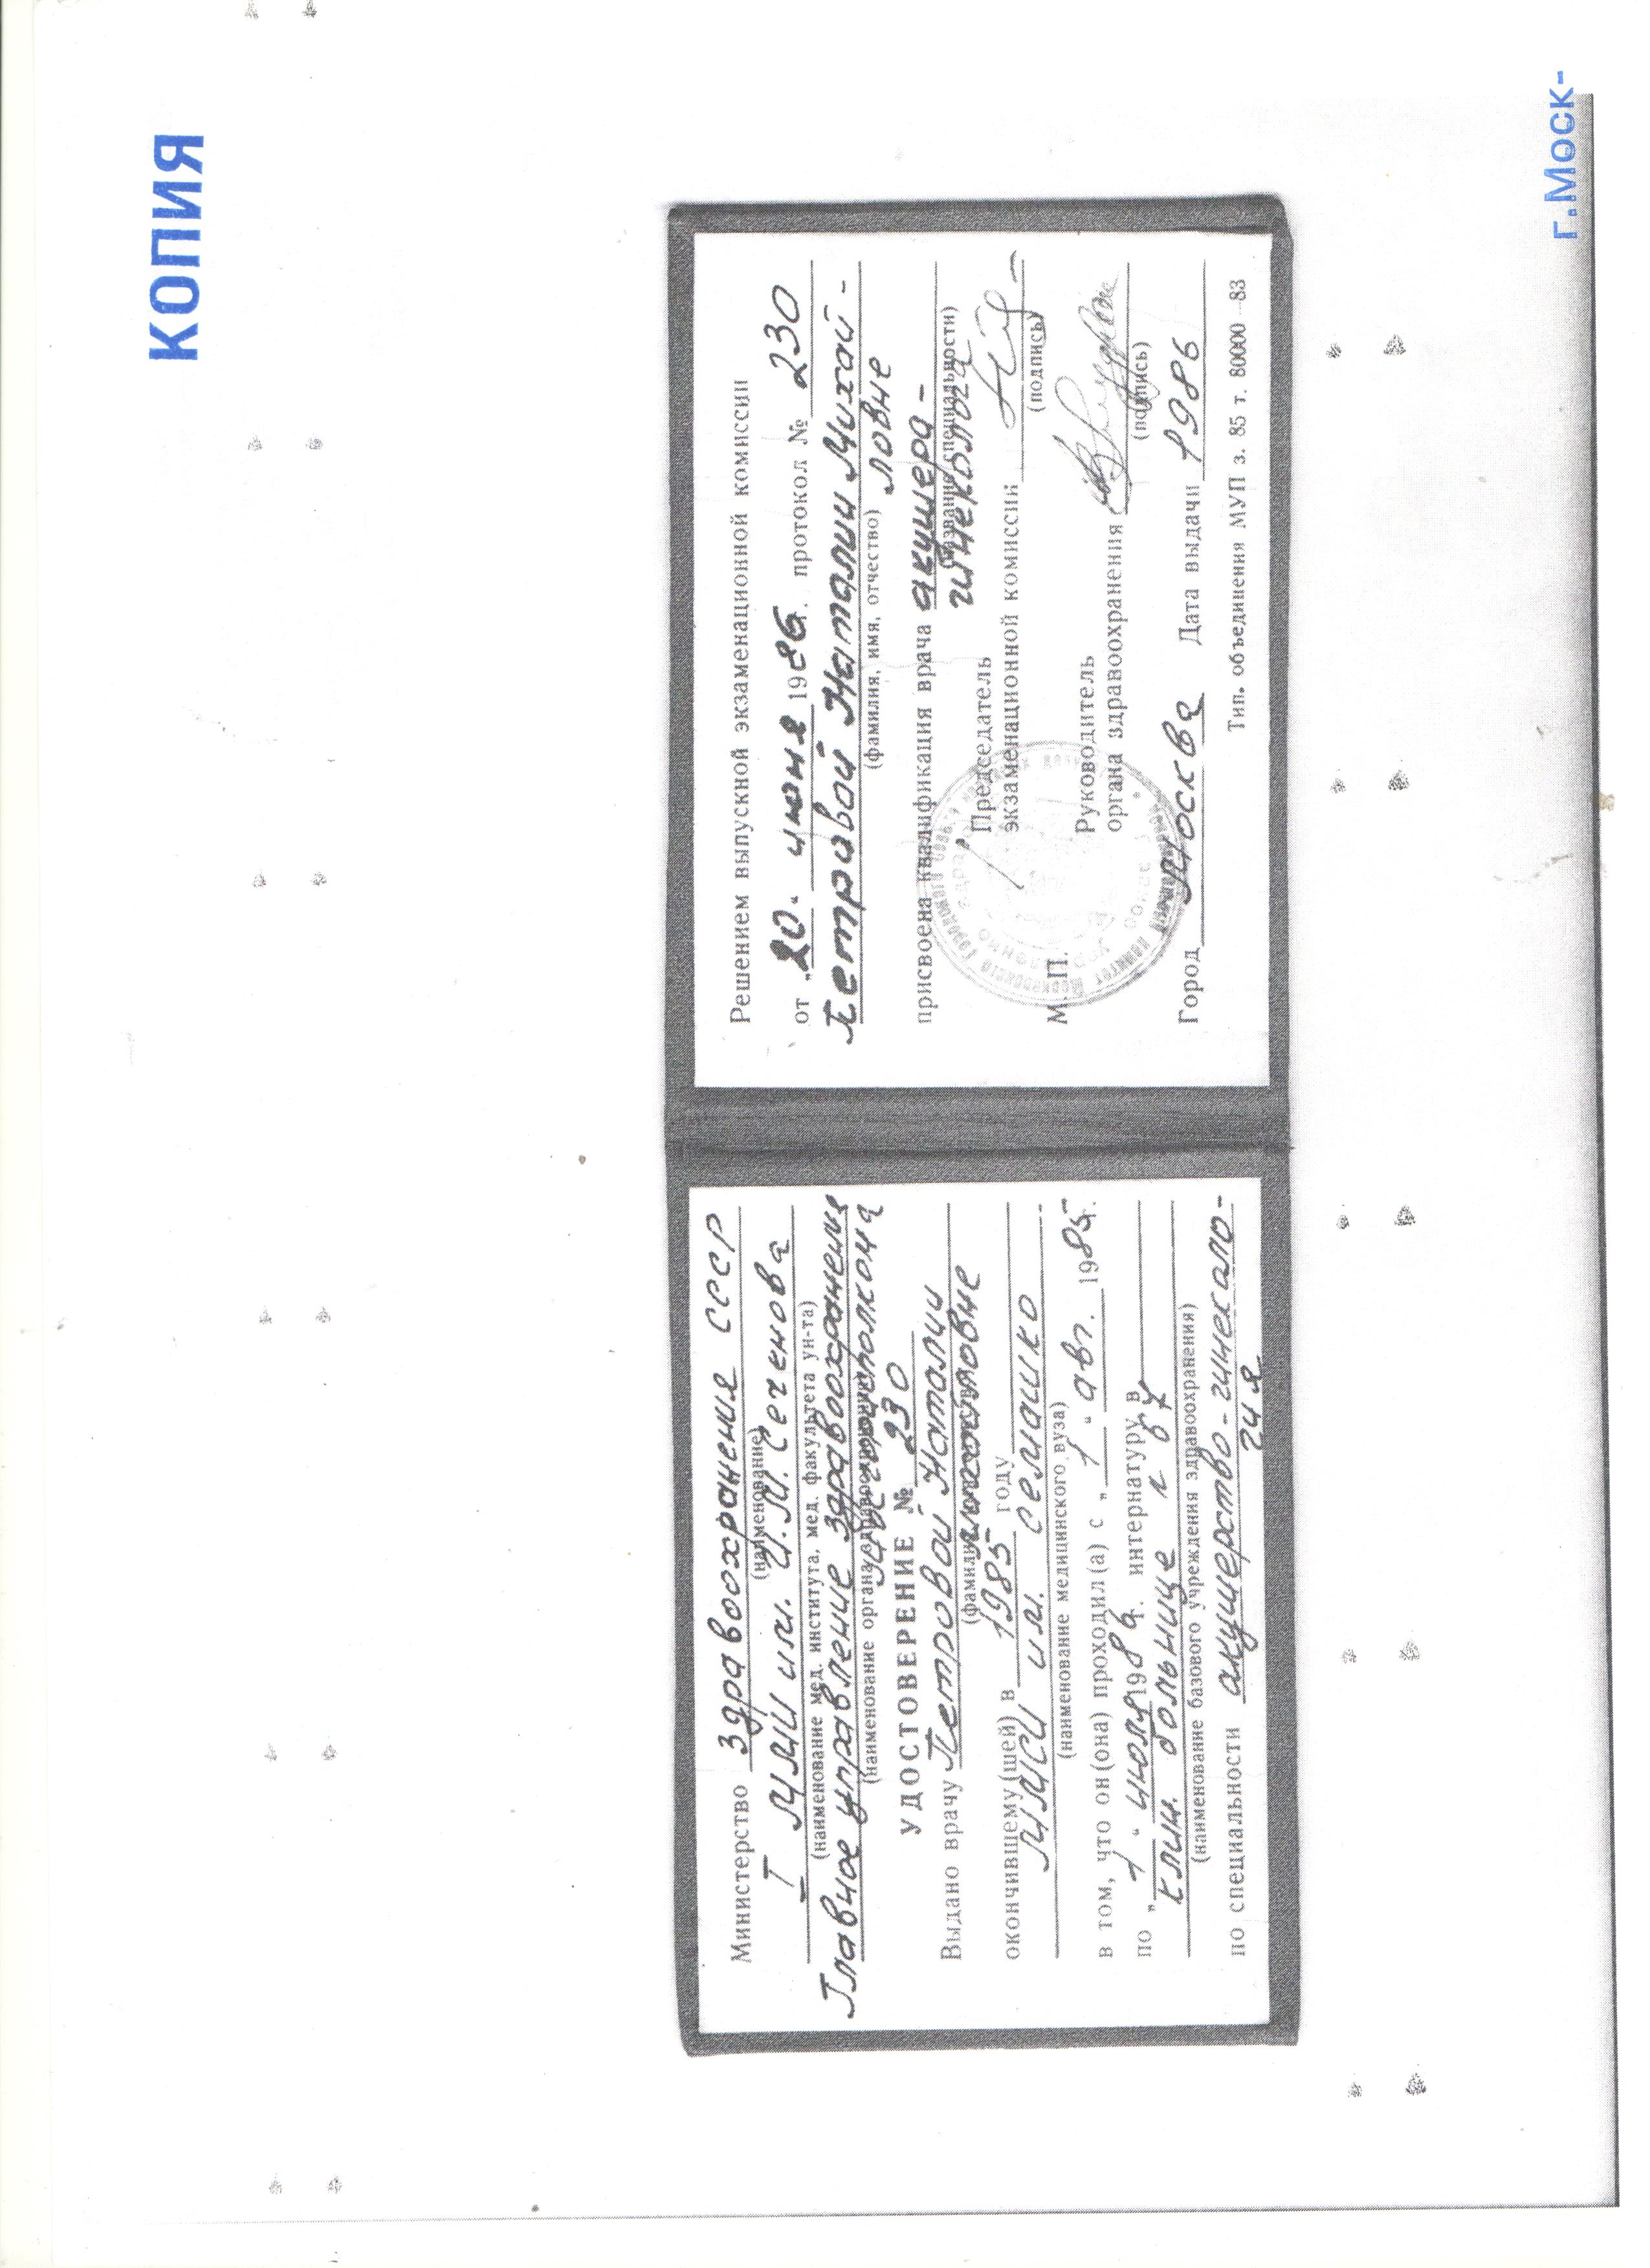 КОПИЯ
Министерство Здравоохранения СССР
(наименование)
I ММИ им. И.М. Сеченова
(наименование мед. института, мед. факультета ун-та)
Главное управление здравоохранения
(наименование органа здравоохранения)
УДОСТОВЕРЕНИЕ № 230
Выдано врачу Петровой Наталии
Михайловне
окончившему(шей) в 1985 году
ММСИ им. Семашко
(наименование медицинского вуза)
в том, что он(она) проходил(а) с „1“ авг. 1985.
по „1“ июля 1986. интернатуру в
клин. больнице № 67
(наименование базового учреждения здравоохранения)
по специальности акушерство-гинеколо-
гия
Решением выпускной экзаменационной комиссии
от „20“ июня 1986. протокол № 230
Петровой Наталии Михай-
(фамилия, имя, отчество) ловне
присвоена квалификация врача акушера-
(название специальности)
гинеколога
Председатель
экзаменационной комиссии
(подпись)
Руководитель
органа здравоохранения
(подпись)
М. П.
Город Москва Дата выдачи 1986
Тип. объединения МУП з. 85 т. 80000—83
г.Моск-